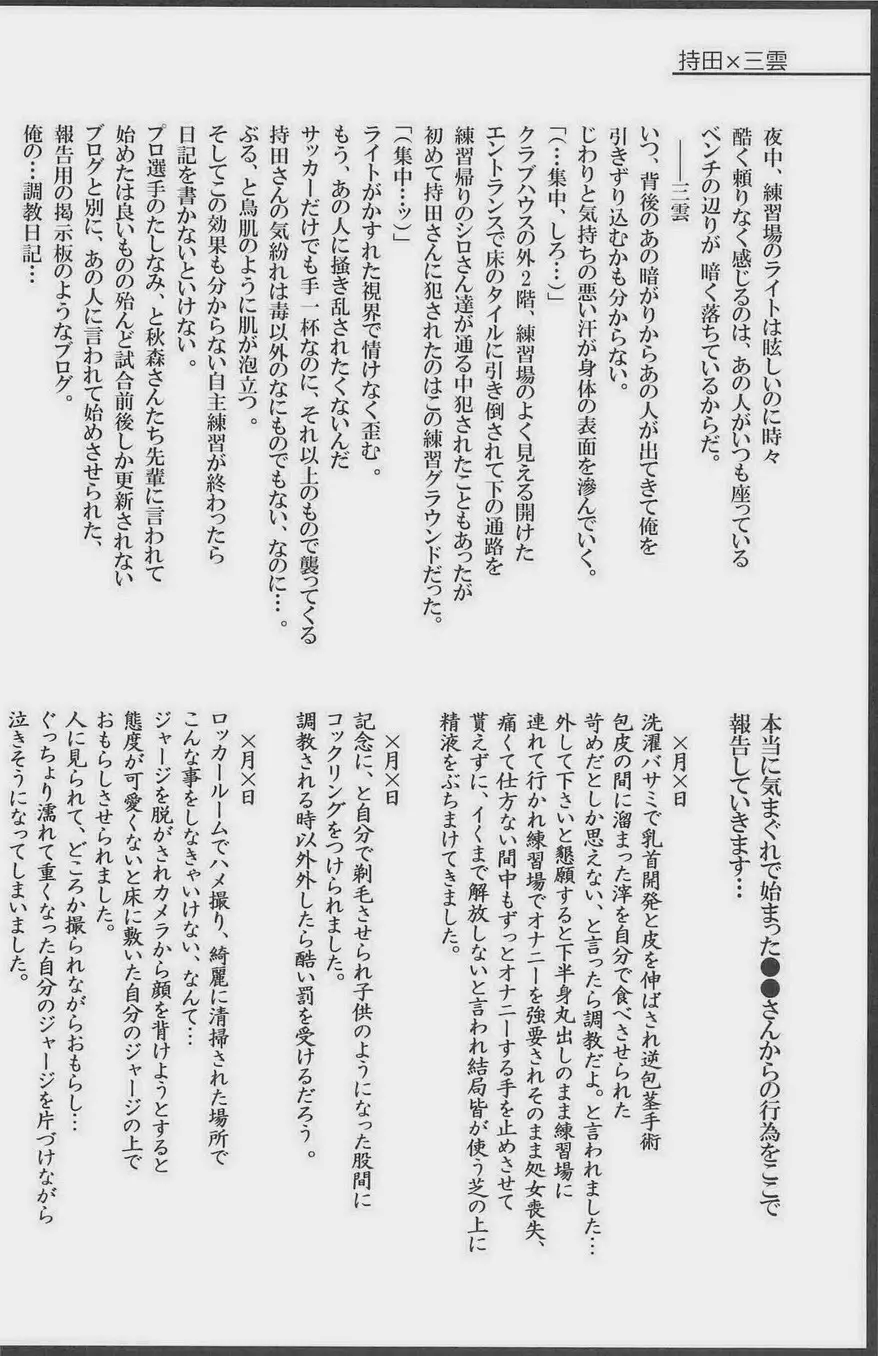 持田×三雲
夜中、練習場のライトは眩しいのに時々
酷く頼りなく感じるのは、あの人がいつも座っている
ベンチの辺りが 暗く落ちているからだ。
――三雲
いつ、背後のあの暗がりからあの人が出てきて俺を
引きずり込むかも分からない。
じわりと気持ちの悪い汗が身体の表面を滲んでいく。
「(…集中、しろ…)」
クラブハウスの外2階、練習場のよく見える開けた
エントランスで床のタイルに引き倒されて下の通路を
練習帰りのシロさん達が通る中犯されたこともあったが
初めて持田さんに犯されたのはこの練習グラウンドだった。
「(集中…ッ)」
ライトがかすれた視界で情けなく歪む。
もう、あの人に掻き乱されたくないんだ
サッカーだけでも手一杯なのに、それ以上のもので襲ってくる
持田さんの気紛れは毒以外のなにものでもない、なのに…。
ぶる、と鳥肌のように肌が泡立つ。
そしてこの効果も分からない自主練習が終わったら
日記を書かないといけない。
プロ選手のたしなみ、と秋森さんたち先輩に言われて
始めたは良いものの殆んど試合前後しか更新されない
ブログと別に、あの人に言われて始めさせられた、
報告用の掲示板のようなブログ。
俺の…調教日記…
本当に気まぐれで始まった●●さんからの行為をここで
報告していきます…
×月×日
洗濯バサミで乳首開発と皮を伸ばされ逆包茎手術
包皮の間に溜まった滓を自分で食べさせられた
苛めだとしか思えない、と言ったら調教だよ。と言われました…
外して下さいと懇願すると下半身丸出しのまま練習場に
連れて行かれ練習場でオナニーを強要されそのまま処女喪失、
痛くて仕方ない間中もずっとオナニーする手を止めさせて
貰えずに、イくまで解放しないと言われ結局皆が使う芝の上に
精液をぶちまけてきました。
×月×日
記念に、と自分で剃毛させられ子供のようになった股間に
コックリングをつけられました。
調教される時以外外したら酷い罰を受けるだろう。
×月×日
ロッカールームでハメ撮り、綺麗に清掃された場所で
こんな事をしなきゃいけない、なんて…
ジャージを脱がされカメラから顔を背けようとすると
態度が可愛くないと床に敷いた自分のジャージの上で
おもらしさせられました。
人に見られて、どころか撮られながらおもらし…
ぐっちょり濡れて重くなった自分のジャージを片づけながら
泣きそうになってしまいました。